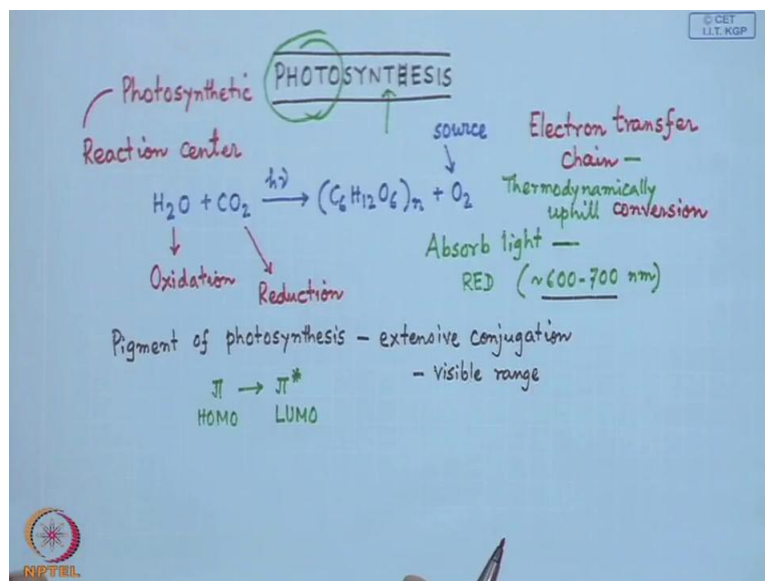 © CET
I.I.T. KGP
PHOTOSYNTHESIS
Photosynthetic
Reaction center
source
Electron transfer
chain –
Thermodynamically
uphill conversion
H₂O + CO₂ hν → (C₆H₁₂O₆)n + O₂
Absorb light —
RED (~600-700 nm)
Oxidation
Reduction
Pigment of photosynthesis – extensive conjugation
– visible range
π → π*
HOMO LUMO
NPTEL